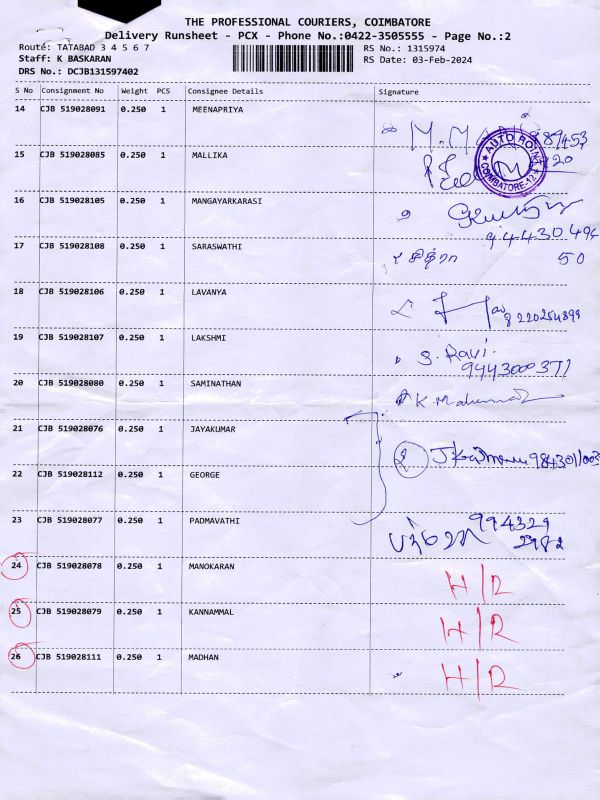 THE PROFESSIONAL COURIERS, COIMBATORE
Delivery Runsheet - PCX - Phone No.:0422-3505555 - Page No.:2
Route: TATABAD 3 4 5 6 7
RS No.: 1315974
Staff: K BASKARAN
RS Date: 03-Feb-2024
DRS No.: DCJB131597402
S No Consignment No Weight PCS Consignee Details Signature
14 CJB 519028091 0.250 1 MEENAPRIYA
15 CJB 519028085 0.250 1 MALLIKA
AUTO POINT
COIMBATORE-12
16 CJB 519028105 0.250 1 MANGAYARKARASI
17 CJB 519028108 0.250 1 SARASWATHI
சித்ரா 50
18 CJB 519028106 0.250 1 LAVANYA
8220254899
19 CJB 519028107 0.250 1 LAKSHMI
S. Ravi.
9443000371
20 CJB 519028080 0.250 1 SAMINATHAN
21 CJB 519028076 0.250 1 JAYAKUMAR
9843011003
22 CJB 519028112 0.250 1 GEORGE
23 CJB 519028077 0.250 1 PADMAVATHI
994329
2982
24 CJB 519028078 0.250 1 MANOKARAN H/R
25 CJB 519028079 0.250 1 KANNAMMAL H/R
26 CJB 519028111 0.250 1 MADHAN H/R